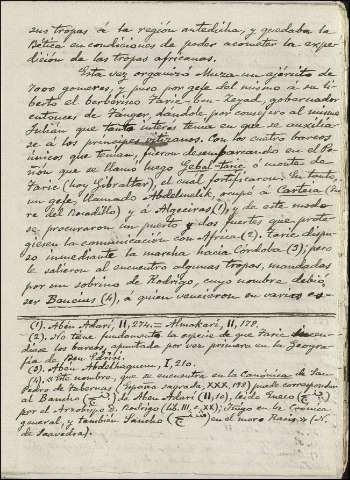 sus tropas á la región antedicha, y quedaba la
Bética en condiciones de poder acometer la expe-
dición de las tropas africanas.
Esta vez organizó Muza un ejército de
7000 gomeres, y puso por gefe del mismo á su li-
berto el berberisco Taric-ben-Zeyad, gobernador
entonces de Tánger, dándole por consejero al mismo
Julián que tanto interés tenía en que se auxilia-
se á los príncipes witizanos. Con los cuatro barcos
únicos que tenían, fueron desembarcando en el Pe-
ñón que se llamó luego Gebal-Taric, ó monte de
Taric (hoy Gibraltar), el cual fortificaron. En tanto,
un gefe, llamado Abdelmelik, ocupó á Carteia (to-
rre del Rocadillo) y á Algeciras (1), y de este modo
se procuraron un puerto y dos fuertes que prote-
giesen la comunicación con África (2). Taric dispu-
so inmediante la marcha hacia Córdoba (3); pero
le salieron al encuentro algunas tropas, mandadas
por un sobrino de Rodrigo, cuyo nombre debió
ser Bancius (4), á quien vencieron en varios en-
(1). Aben Adarí, II, 274. = Almakari, II, 178.
(2). No tiene fundamento la especie de que Taric
dase los barcos, apuntada por vez primera en la Geogra-
fía de Ben Edrisi.
(3). Aben Abdelhaquem, I, 210.
(4). «Este nombre, que se encuentra en la Canónica de San
Pedro de Tabernas (España sagrada, XXX, 198) puede corresponder
al Bancho () de Aben Adarí (II, 10), leído Eneco ()
por el Arzobispo D. Rodrigo (lib. III, c. XX); Íñigo en la Crónica
general, y también Sancho () en el moro Rasis.» (N.
de Saavedra).